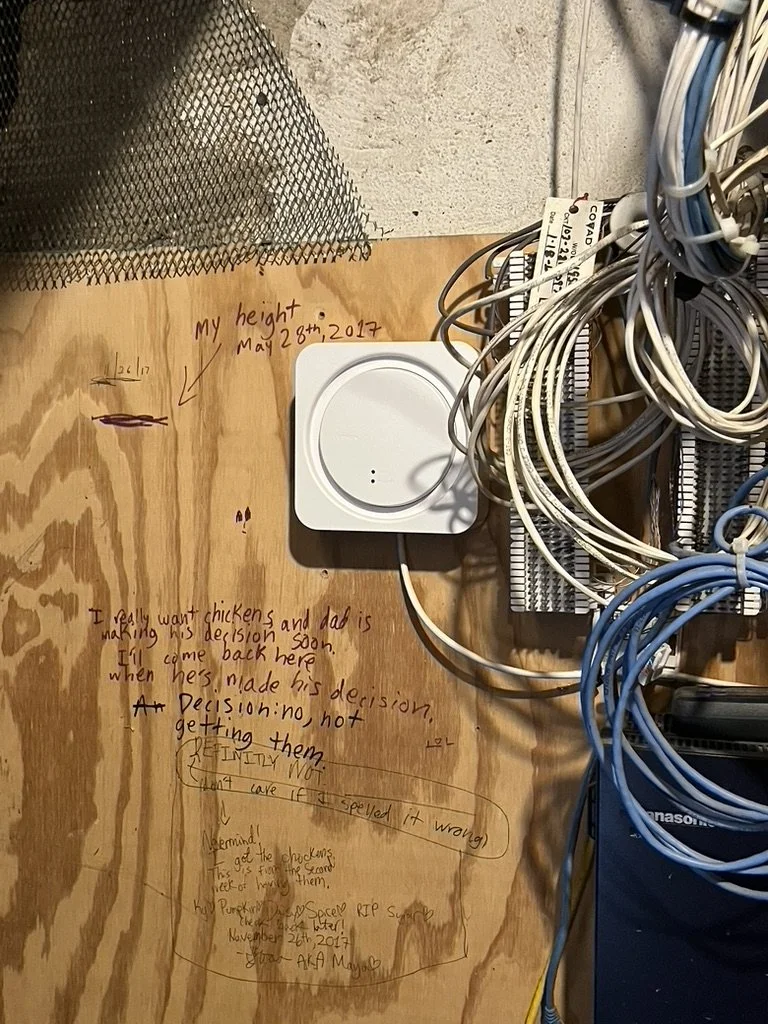 My height
May 28th, 2017
1/26/17
COVAD
I really want chickens and dad is
making his decision soon.
I'll come back here
when he's made his decision.
Decision: no, not
getting them.
LOL
DEFINITLY NOT
(don't care if I spelled it wrong)
Nevermind!
I got the chickens.
This is from the second
week of having them.
Pumpkin♡ Spice♡ RIP
later!
November 26th, 2017
AKA Maya♡
Panasonic